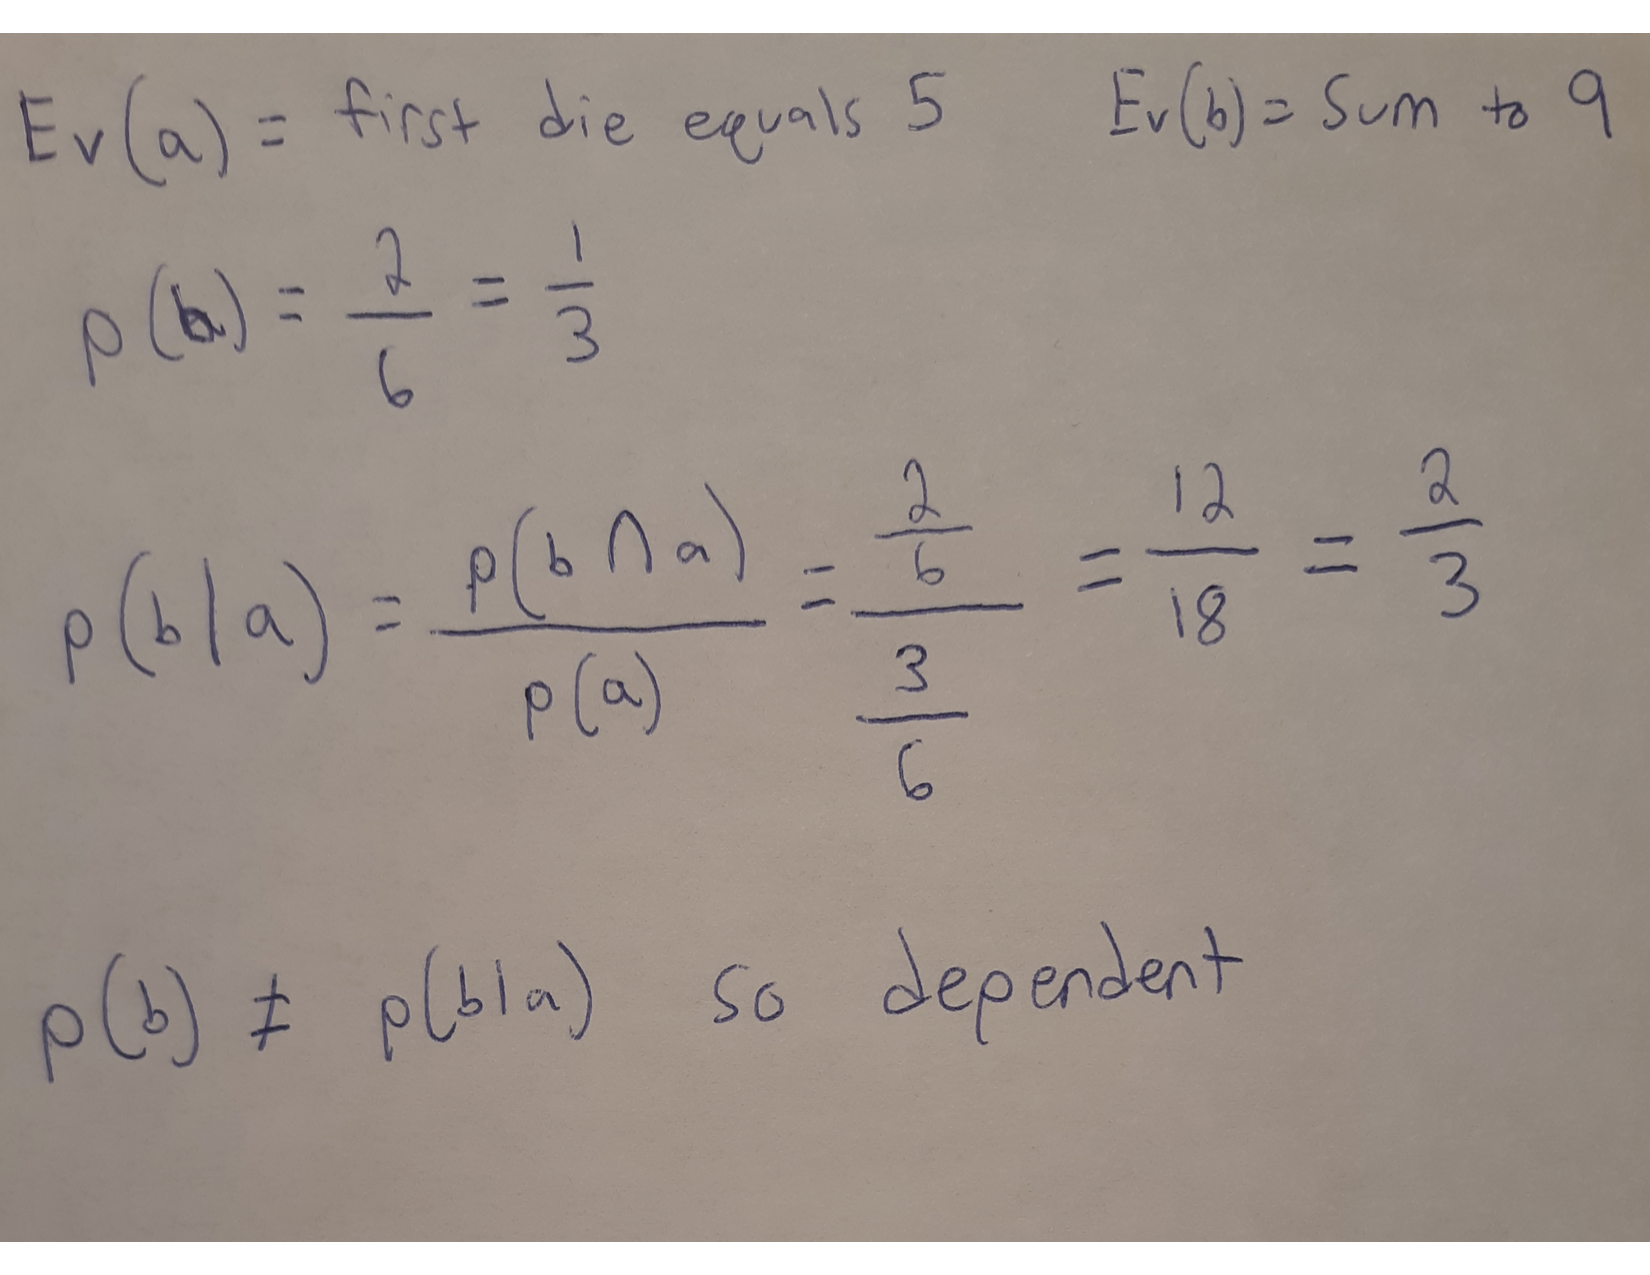 Ev(a) = first die equals 5 Ev(b) = Sum to 9
p(b) = 2/6 = 1/3
p(b|a) = p(b ∩ a)/p(a) = (2/6)/(3/6) = 12/18 = 2/3
p(b) ≠ p(b|a) so dependent